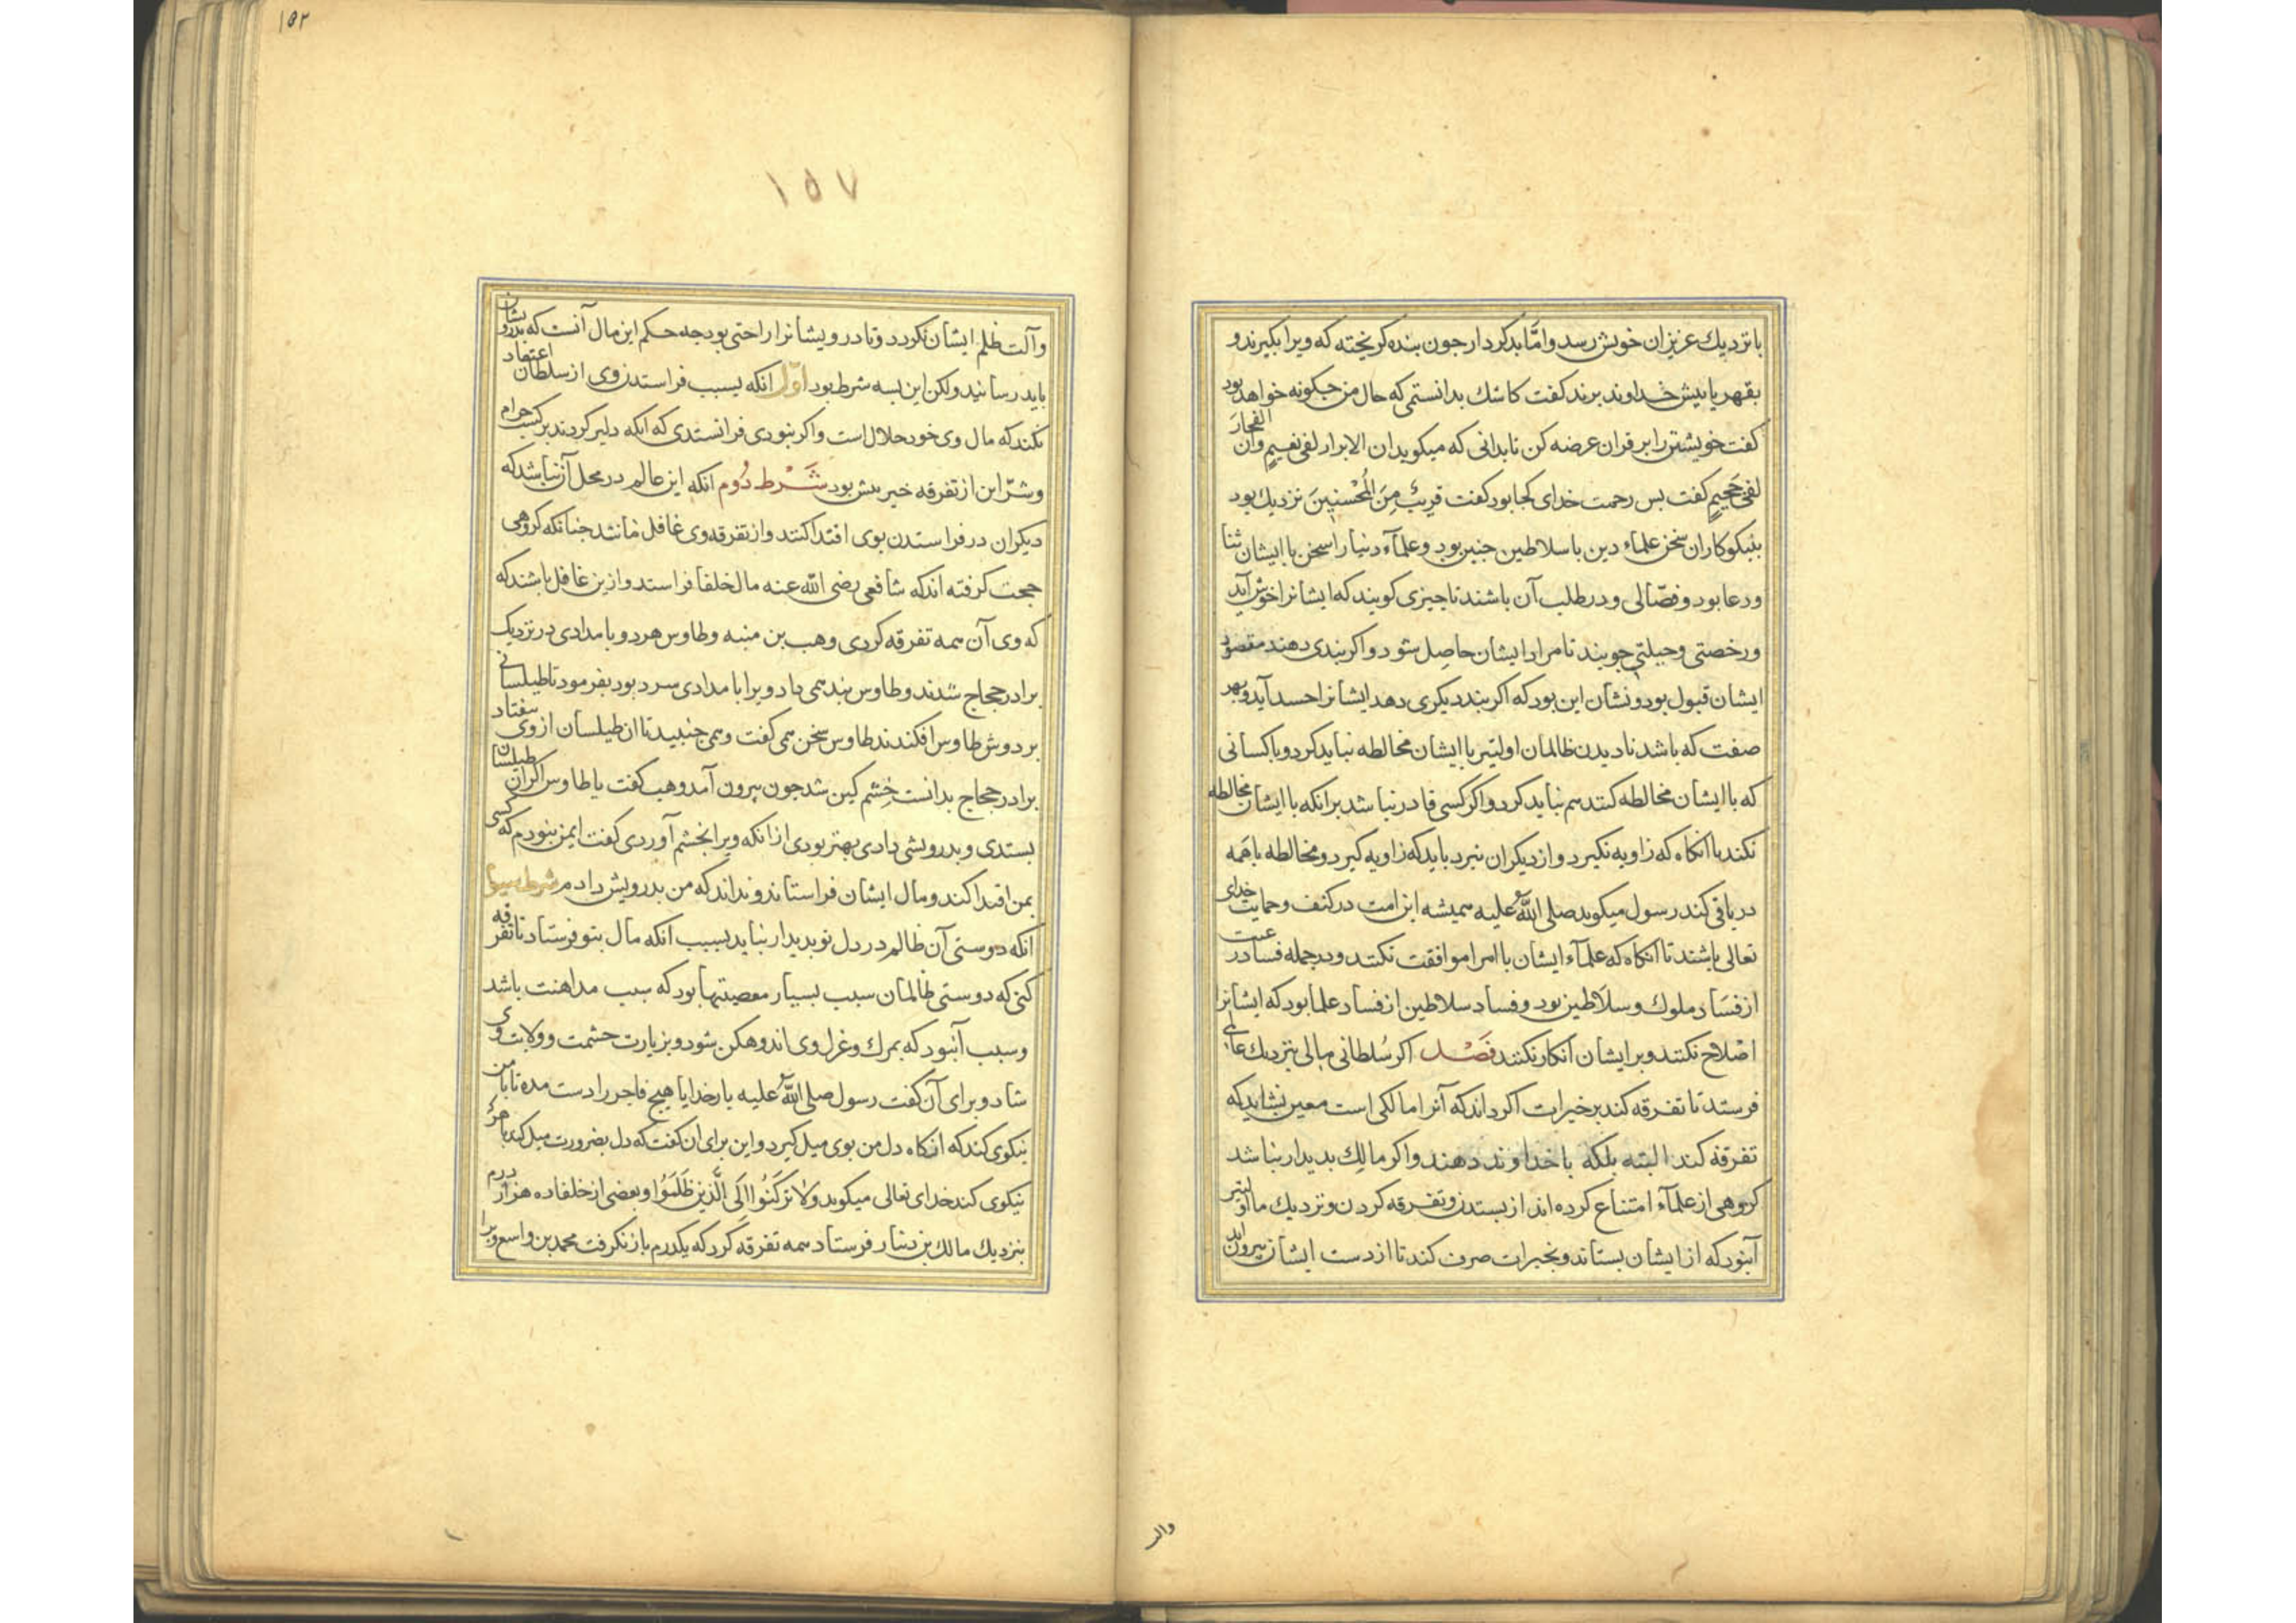 با نزدیك عزیزان خویش رسد و امّا بدکردار جون بنده کریخته که ویرا بکیرند و
بقهر با بیش خداوند برند کفت کاشك بدانستمی که حال من جکونه خواهد بود
کفت خویشتن را بر قران عرضه کن تا بدانی که میکوید ان الابرار لفی نعیمٍ وان الفجارَ
لفی جَحیمٍ کفت بس رحمت خدای کجا بود کفت قریبٌ مِنَ الْمُحْسنِینَ نزدیك بود
بنیکوکاران سخن علماء دین با سلاطین جنین بود و علمآء دنیا را سخن با ایشان ثنا
ودعا بود و فصّالی و در طلب آن باشند تا جیزی کویند که ایشانرا خوش آید
ورخصتی وحیلتی جویند تا مراد ایشان حاصِل شود و اکر بندی دهند مقصود
ایشان قبول بود و نشان این بود که اکر بند دیکری دهد ایشانرا حسد آید و بهر
صفت که باشد نادیدن ظالمان اولیتر با ایشان مخالطه نباید کرد و با کسانی
که با ایشان مخالطه کنند هم نباید کرد و اکر کسی قادر نباشد برانکه با ایشان مخالطه
نکند با انکاه که زاویه نکیرد و از دیکران نبرد باید که زاویه کیرد و مخالطه با همه
در باقی کند رسول میکوید صلی اللّه علیه همیشه این امت در کنف وحمایت خدای
تعالی باشند تا انکاه که علمآء ایشان با امرا موافقت نکنند و در جمله فساد رعیت
از فسَاد ملوك وسلَاطین بود و فساد سلاطین از فساد علما بود که ایشانرا
اصْلاح نکنند و بر ایشان انکار نکنند فَصْل اکر سُلطانی مالی بنزدیك عالمی
فرستد تا تفرقه کند بر خیرات اکر داند که آنرا مالکی است معین نشاید که
تفرقه کند البته بلکه با خداوند دهند و اکر مالِك بدیدار نباشد
کروهی از علمآء امتناع کرده اند از بستدن و تفرقه کردن و نزدیك ما اولیتر
آن بود که از ایشان بستاند و بخیرات صرف کند تا از دست ایشان بیرون آید
والت
۱۵۲
۱۵۷
وآلت ظلم ایشان نکردد و تا درویشانرا راحتی بود جه حکم این مال آنست که بدرویشان
باید رسانید ولکن این بسه شرط بود اوّل انکه بسبب فراستدن وی از سلطان اعتقاد
نکند که مال وی خود حلال است و اکر نبودی فرانستدی که انکه دلیر کردند بر کسب حرام
وشرّ این از تفرقه خیر بیش بود شَرْط دُوم انکه این عالم در محل آن نباشد که
دیکران در فراستدن بوی اقتدا کنند و از تفرقه وی غافل مانند جنانکه کروهی
حجت کرفته اند که شافعی رضی اللّه عنه مال خلفا فراستد و ازین غافل باشند که
که وی آن همه تفرقه کردی وهب بن منبه و طاوس هر دو بامدادی در نزدیك
برادر حجاج شدند و طاوس بند همی داد ویرا بامدادی سرد بود بفرمود تا طیلسانی
بر دوش طاوس افکندند طاوس سخن همی کفت و همی جنبید تا ان طیلسان از وی بیفتاد
برادر حجاج بدانست خشم کین شد جون بیرون آمد وهب کفت یا طاوس اکر ان طیلسان
بستدی و بدرویشی دادی بهتر بودی از انکه ویرا بخشم آوردی کفت ایمن نبودم که کسی
بمن اقتدا کند و مال ایشان فراستاند و نداند که من بدرویش دادم شرط سیوم
انکه دوستی آن ظالم در دل تو بدیدار نیاید بسبب انکه مال بتو فرستاد تا تفرقه
کنی که دوستی ظالمان سبب بسیار معصیتها بود که سبب مداهنت باشد
وسبب آن بود که بمرك و عزل وی اندوهکن شود و بزیارت حشمت و ولایت وی
شاد و برای آن کفت رسول صلی اللّه علیه بار خدایا هیچ فاجر را دست مده تا با من
نیکوی کند که انکاه دل من بوی میل کیرد و این برای ان کفت که دل بضرورت میل کند با هرك
نیکوی کند خدای تعالی میکوید وَلا تَرْکَنُوا اِلَی الَّذینَ ظَلَمُوا و بعضی از خلفا ده هزار درم
بنزدیك مالك بن دینار فرستاد همه تفرقه کرد که یکدرم باز نکرفت محمد بن واسع ویرا